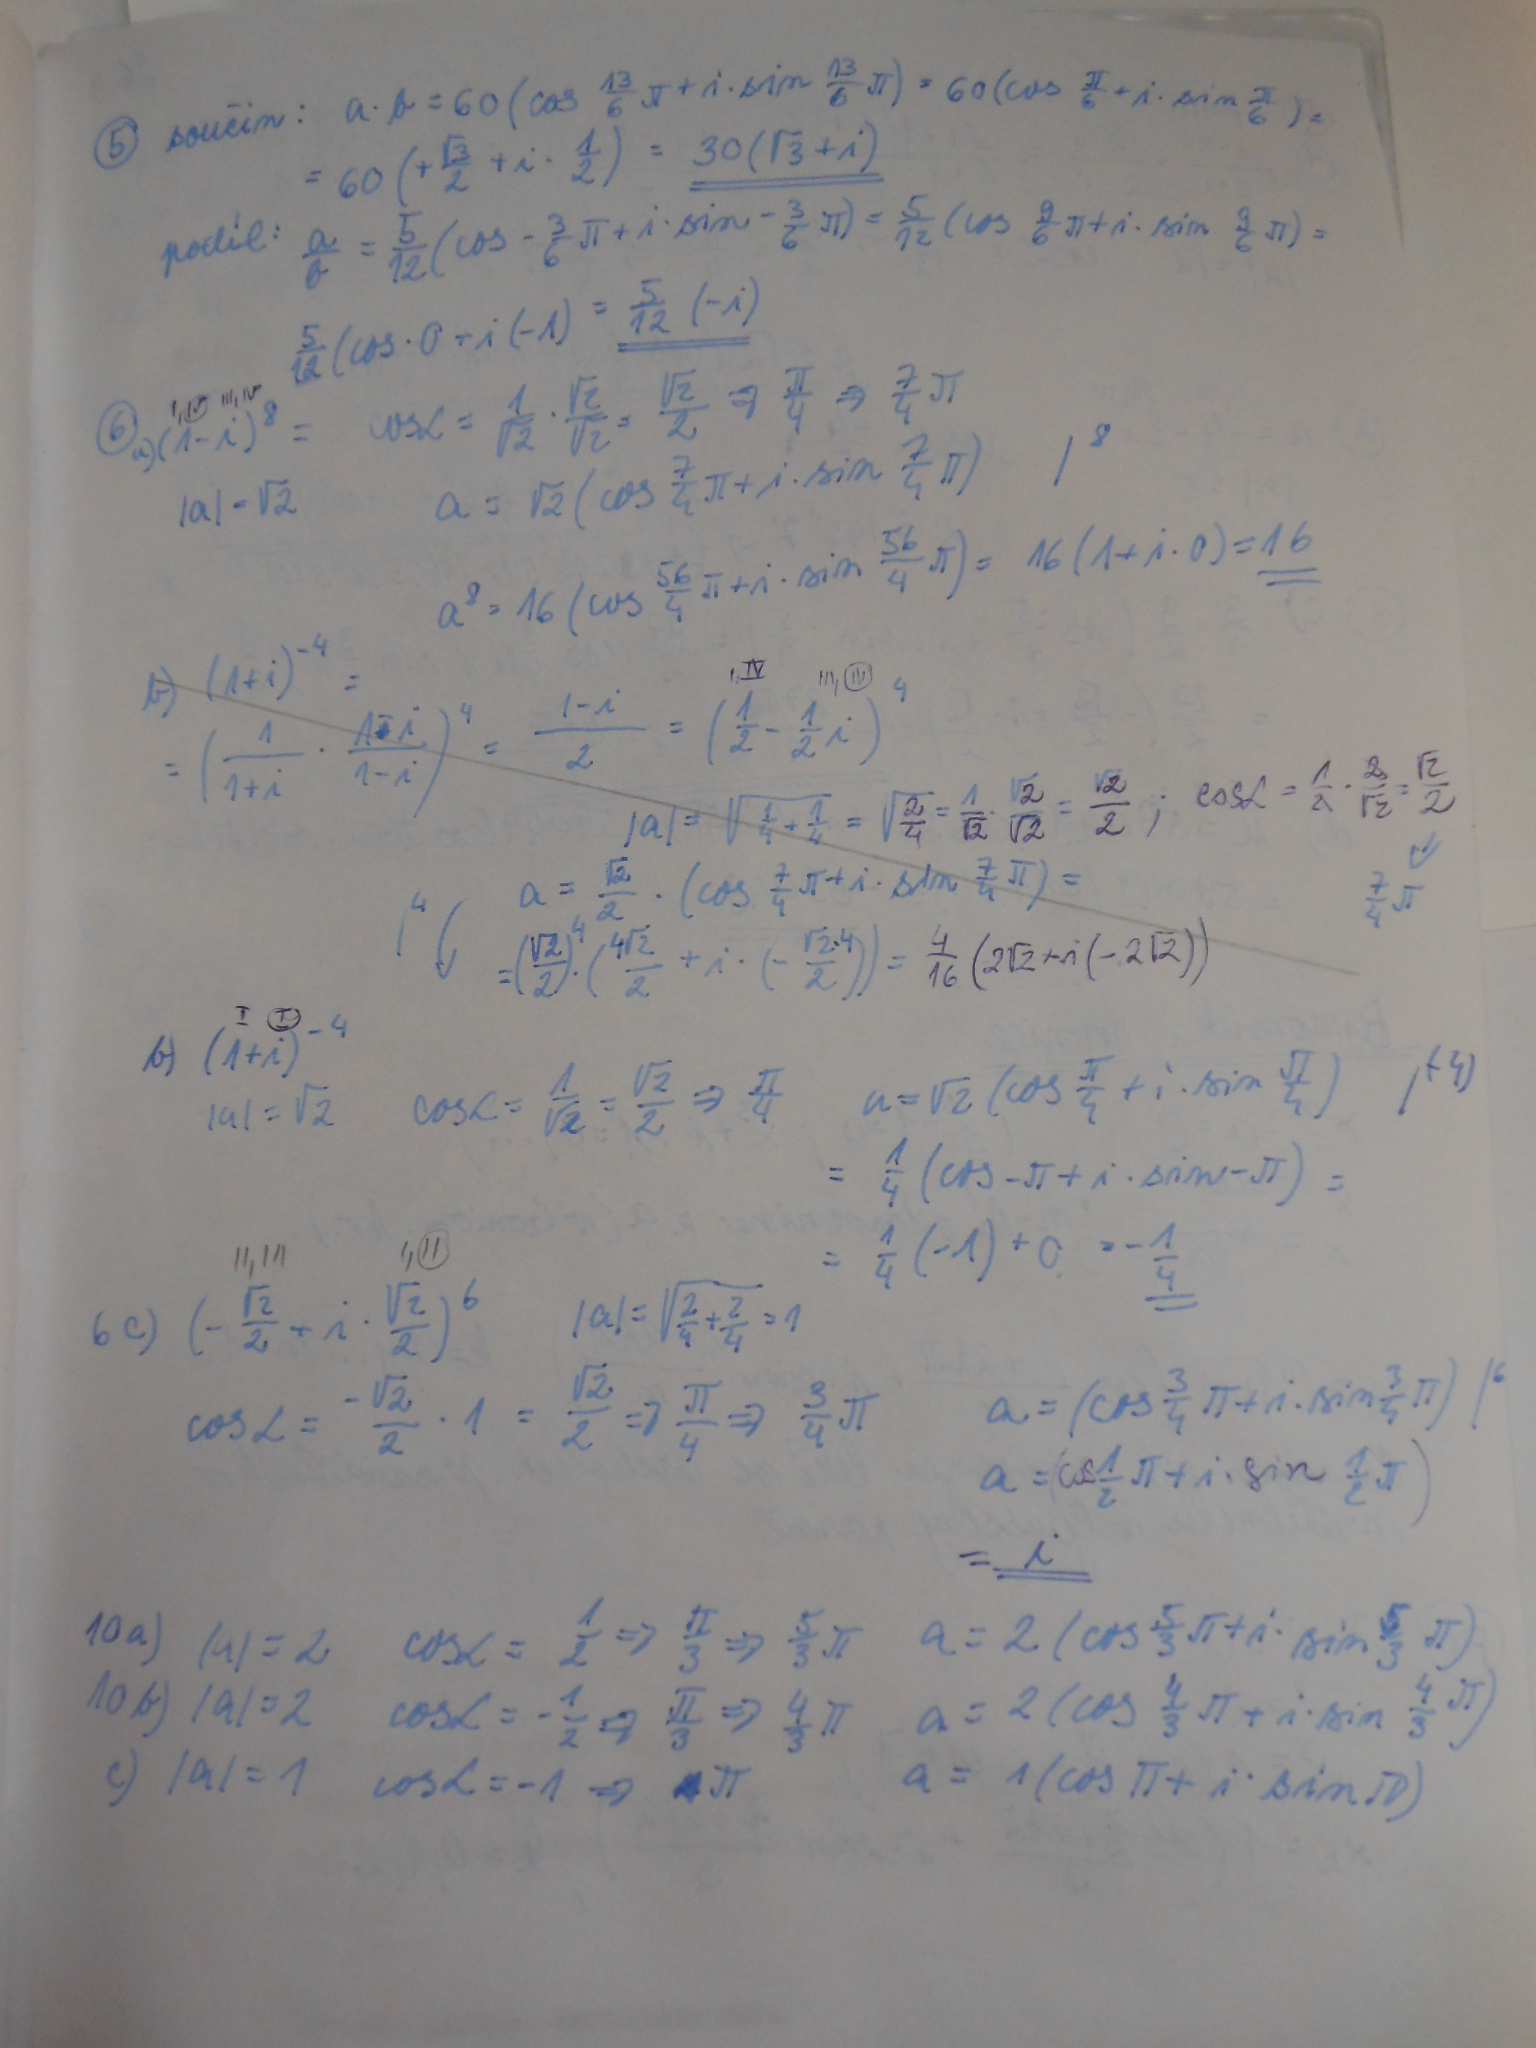 ⑤ součin: a·b = 60(cos 13/6 π + i·sin 13/6 π) = 60(cos π/6 + i·sin π/6) =
= 60(+√3/2 + i·1/2) = 30(√3+i)
podíl: a/b = 5/12(cos -3/6 π + i·sin -3/6 π) = 5/12(cos 9/6 π + i·sin 9/6 π) =
5/12(cos·0 + i(-1) = 5/12(-i)
I, IV III, IV
⑥ a) (1-i)^8 = cosα = 1/√2 · √2/√2 = √2/2 ⇒ π/4 ⇒ 7/4 π
|a| = √2 a = √2(cos 7/4 π + i·sin 7/4 π) /^8
a^8 = 16(cos 56/4 π + i·sin 56/4 π) = 16(1+i·0) = 16
b) (1+i)^-4 =
I, IV III, IV
= (1/(1+i) · (1-i)/(1-i))^4 = (1-i)/2 = (1/2 - 1/2 i)^4
|a| = √(1/4 + 1/4) = √(2/4) = 1/√2 · √2/√2 = √2/2 ; cosα = 1/2 · 2/√2 = √2/2
/^4 a = √2/2 · (cos 7/4 π + i·sin 7/4 π) = 7/4 π
= (√2/2)^4 · (4√2/2 + i·(-√2·4/2)) = 4/16 (2√2 + i(-2√2))
I I
b) (1+i)^-4
|a| = √2 cosα = 1/√2 = √2/2 ⇒ π/4 a = √2(cos π/4 + i·sin π/4) /^(-4)
= 1/4 (cos -π + i·sin -π) =
= 1/4 (-1) + 0 = -1/4
II, III I, II
6 c) (-√2/2 + i·√2/2)^6 |a| = √(2/4 + 2/4) = 1
cosα = -√2/2 · 1 = √2/2 ⇒ π/4 ⇒ 3/4 π a = (cos 3/4 π + i·sin 3/4 π) /^6
a = (cos 1/2 π + i·sin 1/2 π)
= i
10 a) |a| = 2 cosα = 1/2 ⇒ π/3 ⇒ 5/3 π a = 2(cos 5/3 π + i·sin 5/3 π)
10 b) |a| = 2 cosα = -1/2 ⇒ π/3 ⇒ 4/3 π a = 2(cos 4/3 π + i·sin 4/3 π)
c) |a| = 1 cosα = -1 ⇒ π a = 1(cos π + i·sin π)